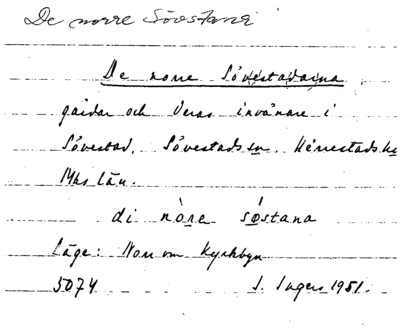 De norre Sövestana
De norre Sövestadarna
gårdar och deras invånare i
Sövestad, Sövestads sn. Herrestads hd
Mhs län.
di nòre søstana
Läge: Norr om Kyrkbyn
5074 I. Ingers 1951.